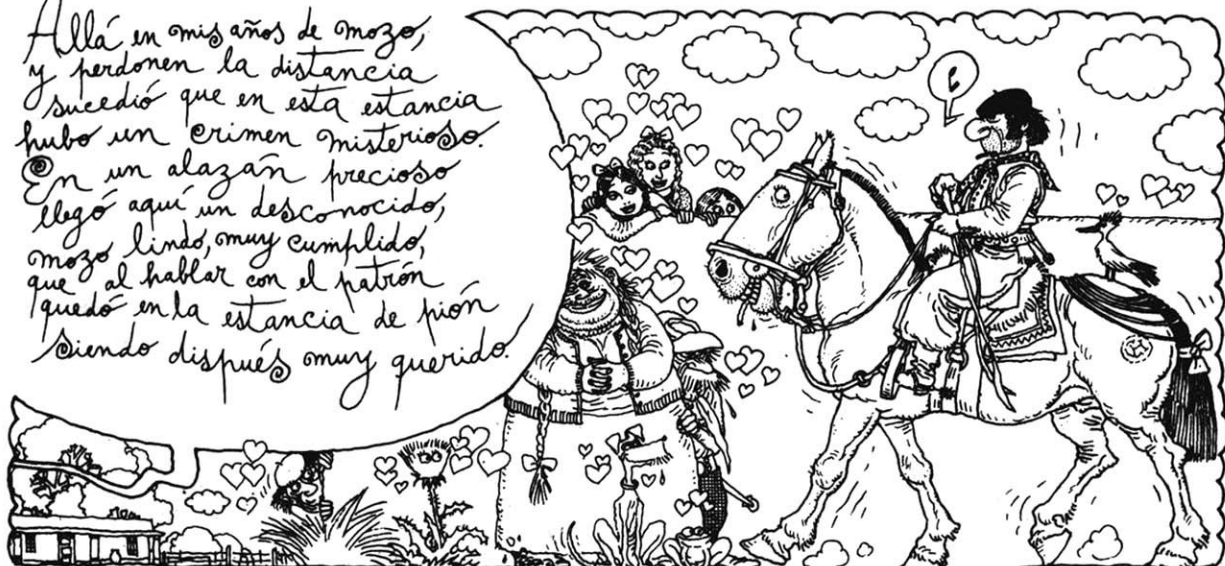 Allá en mis años de mozo,
y perdonen la distancia
sucedió que en esta estancia
hubo un crimen misterioso.
En un alazán precioso
llegó aquí un desconocido,
mozo lindo, muy cumplido,
que al hablar con el patrón
quedó en la estancia de pión
siendo dispués muy querido.